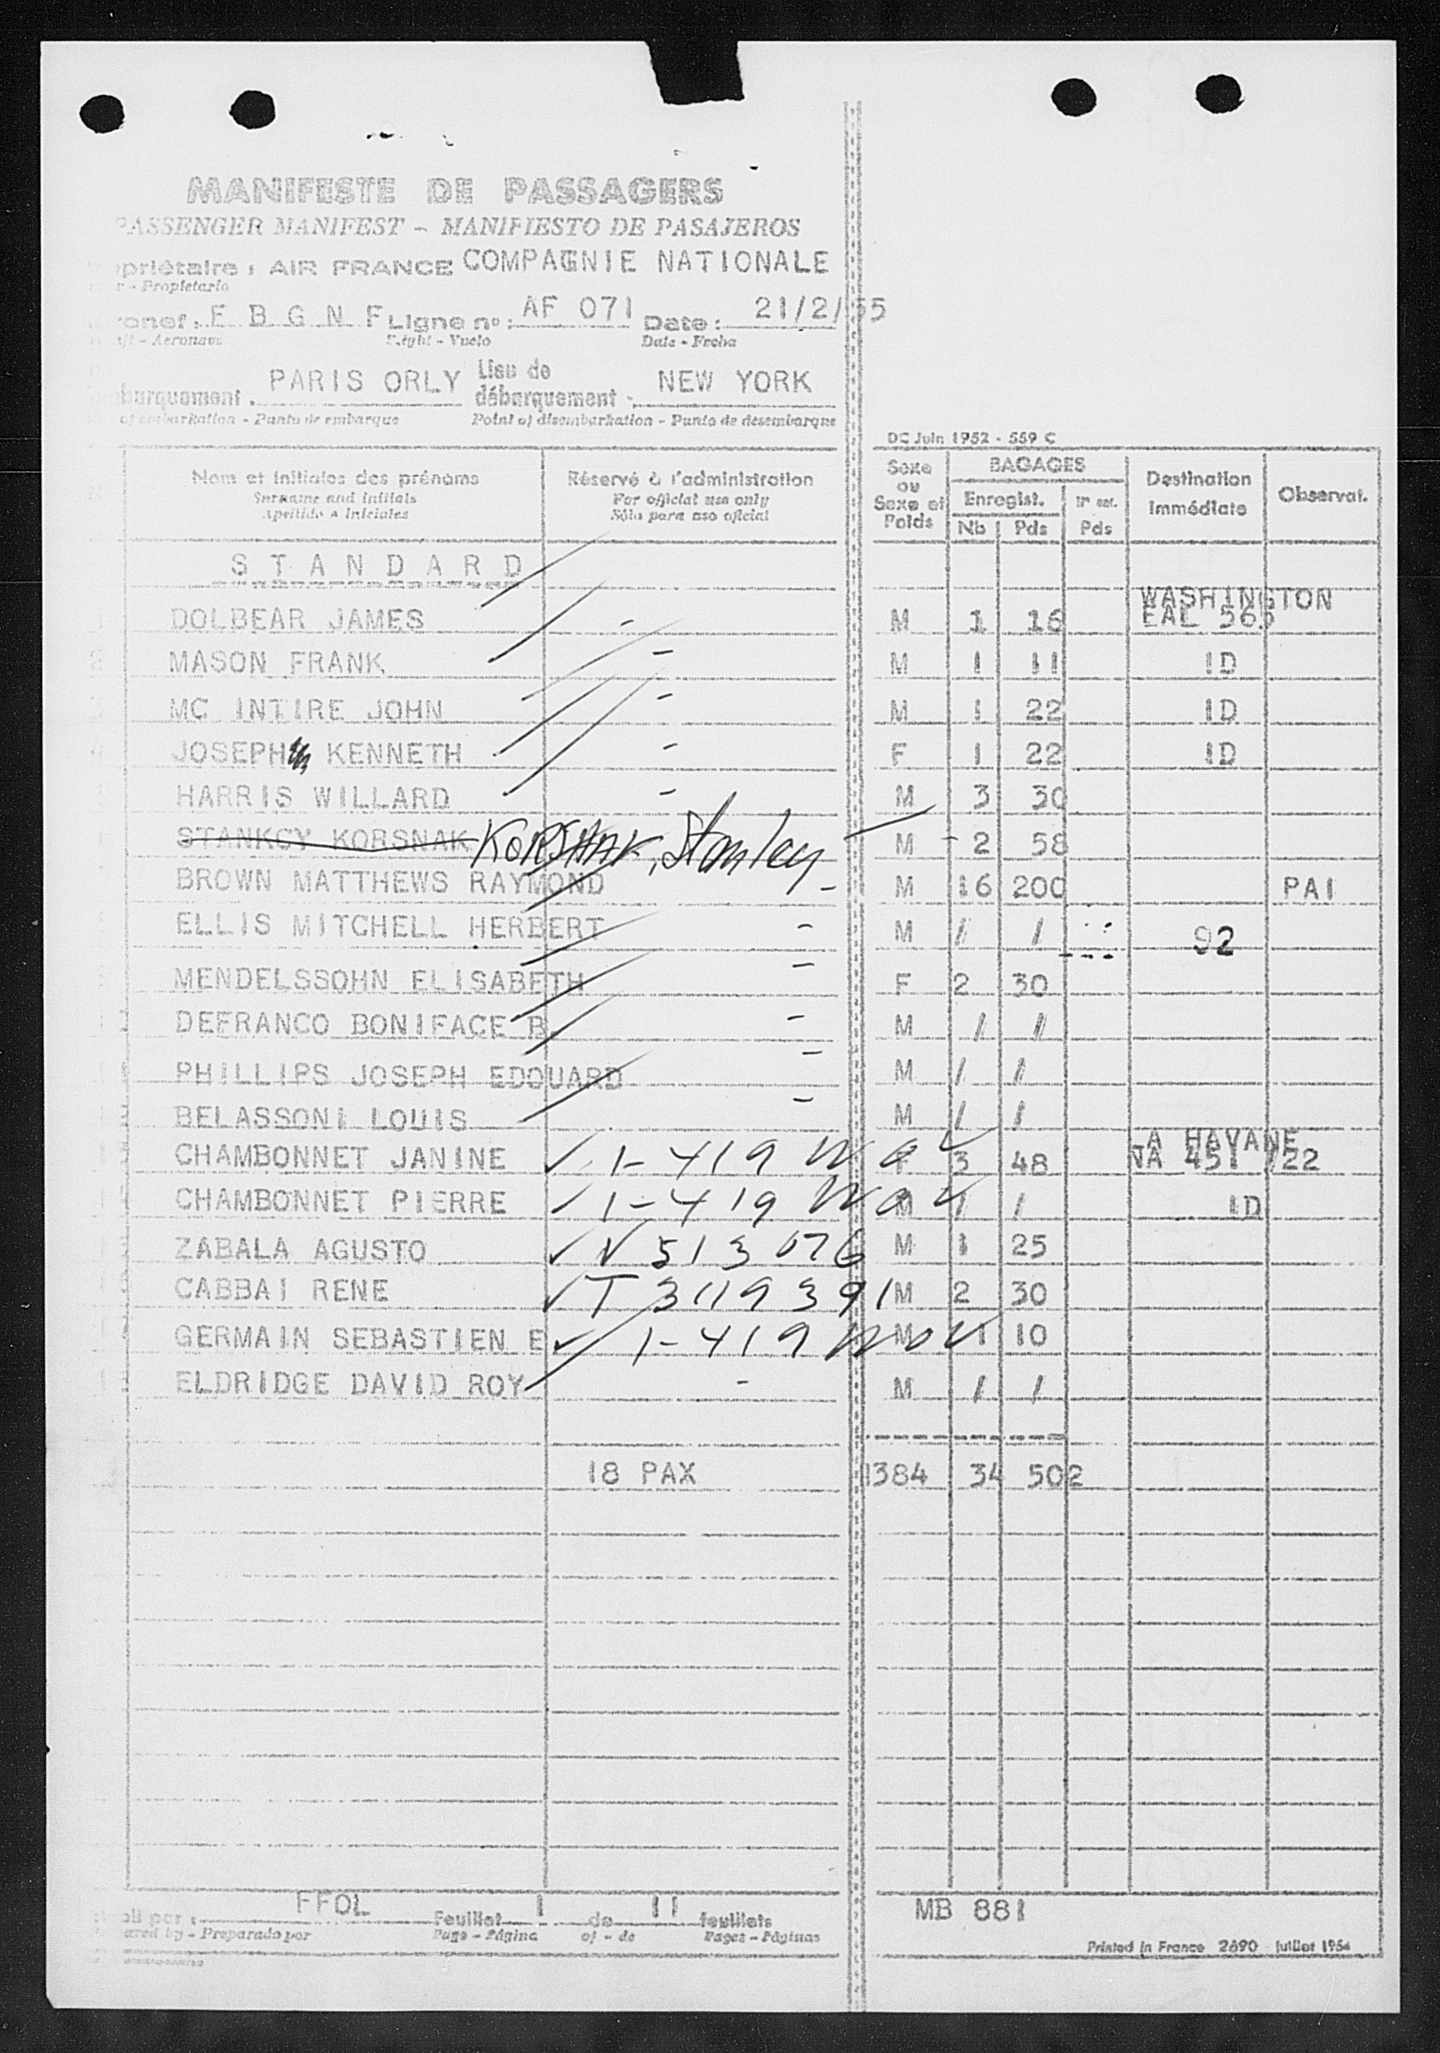 MANIFESTE DE PASSAGERS
PASSENGER MANIFEST - MANIFIESTO DE PASAJEROS
opriétaire : AIR FRANCE COMPAGNIE NATIONALE
r - Propietario
ronef : F B G N F Ligne n° : AF 071 Date : 21/2/55
- Aeronave Flight - Vuelo Date - Fecha
barquement . PARIS ORLY Lieu de débarquement : NEW YORK
of embarkation - Punto de embarque Point of disembarkation - Punto de desembarque
DC Juin 1952 - 559 C
Nom et initiales des prénoms Réservé à l'administration Sexe ou Sexe et Poids BAGAGES Destination Immédiate Observat.
Surname and initials For official use only Enregist. N° en.
Apellido e iniciales Sólo para uso oficial Nb Pds Pds
S T A N D A R D
WASHINGTON
DOLBEAR JAMES - M 1 16 EAL 565
MASON FRANK - M 1 11 ID
MC INTIRE JOHN - M 1 22 ID
JOSEPH KENNETH - F 1 22 ID
HARRIS WILLARD - M 3 30
STANKCY KORSNAK KORSHAK, Stanley M - 2 58
BROWN MATTHEWS RAYMOND - M 16 200 PAI
ELLIS MITCHELL HERBERT - M / / 92
MENDELSSOHN ELISABETH - F 2 30
DEFRANCO BONIFACE B. - M / /
PHILLIPS JOSEPH EDOUARD - M / /
BELASSONI LOUIS - M / /
LA HAVANE
CHAMBONNET JANINE ✓ 1-419 F 3 48 NA 451 /22
CHAMBONNET PIERRE ✓ 1-419 M / / ID
ZABALA AGUSTO ✓ V 513 076 M 1 25
CABBAI RENE ✓ T 3119391 M 2 30
GERMAIN SEBASTIEN E ✓ 1-419 M 1 10
ELDRIDGE DAVID ROY - M / /
18 PAX 1384 34 502
FFOL
bli par : Feuillet 1 de 11 feuillets MB 881
ared by - Preparado por Page - Página of - de Pages - Páginas
Printed in France 2690 Juillet 1954